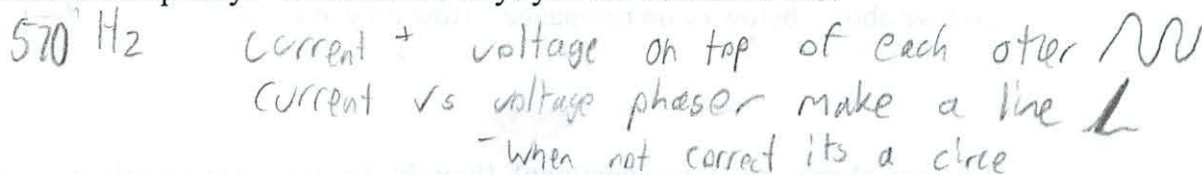 570 Hz current + voltage on top of each oter
current vs voltage phaser make a line
- when not correct its a circe